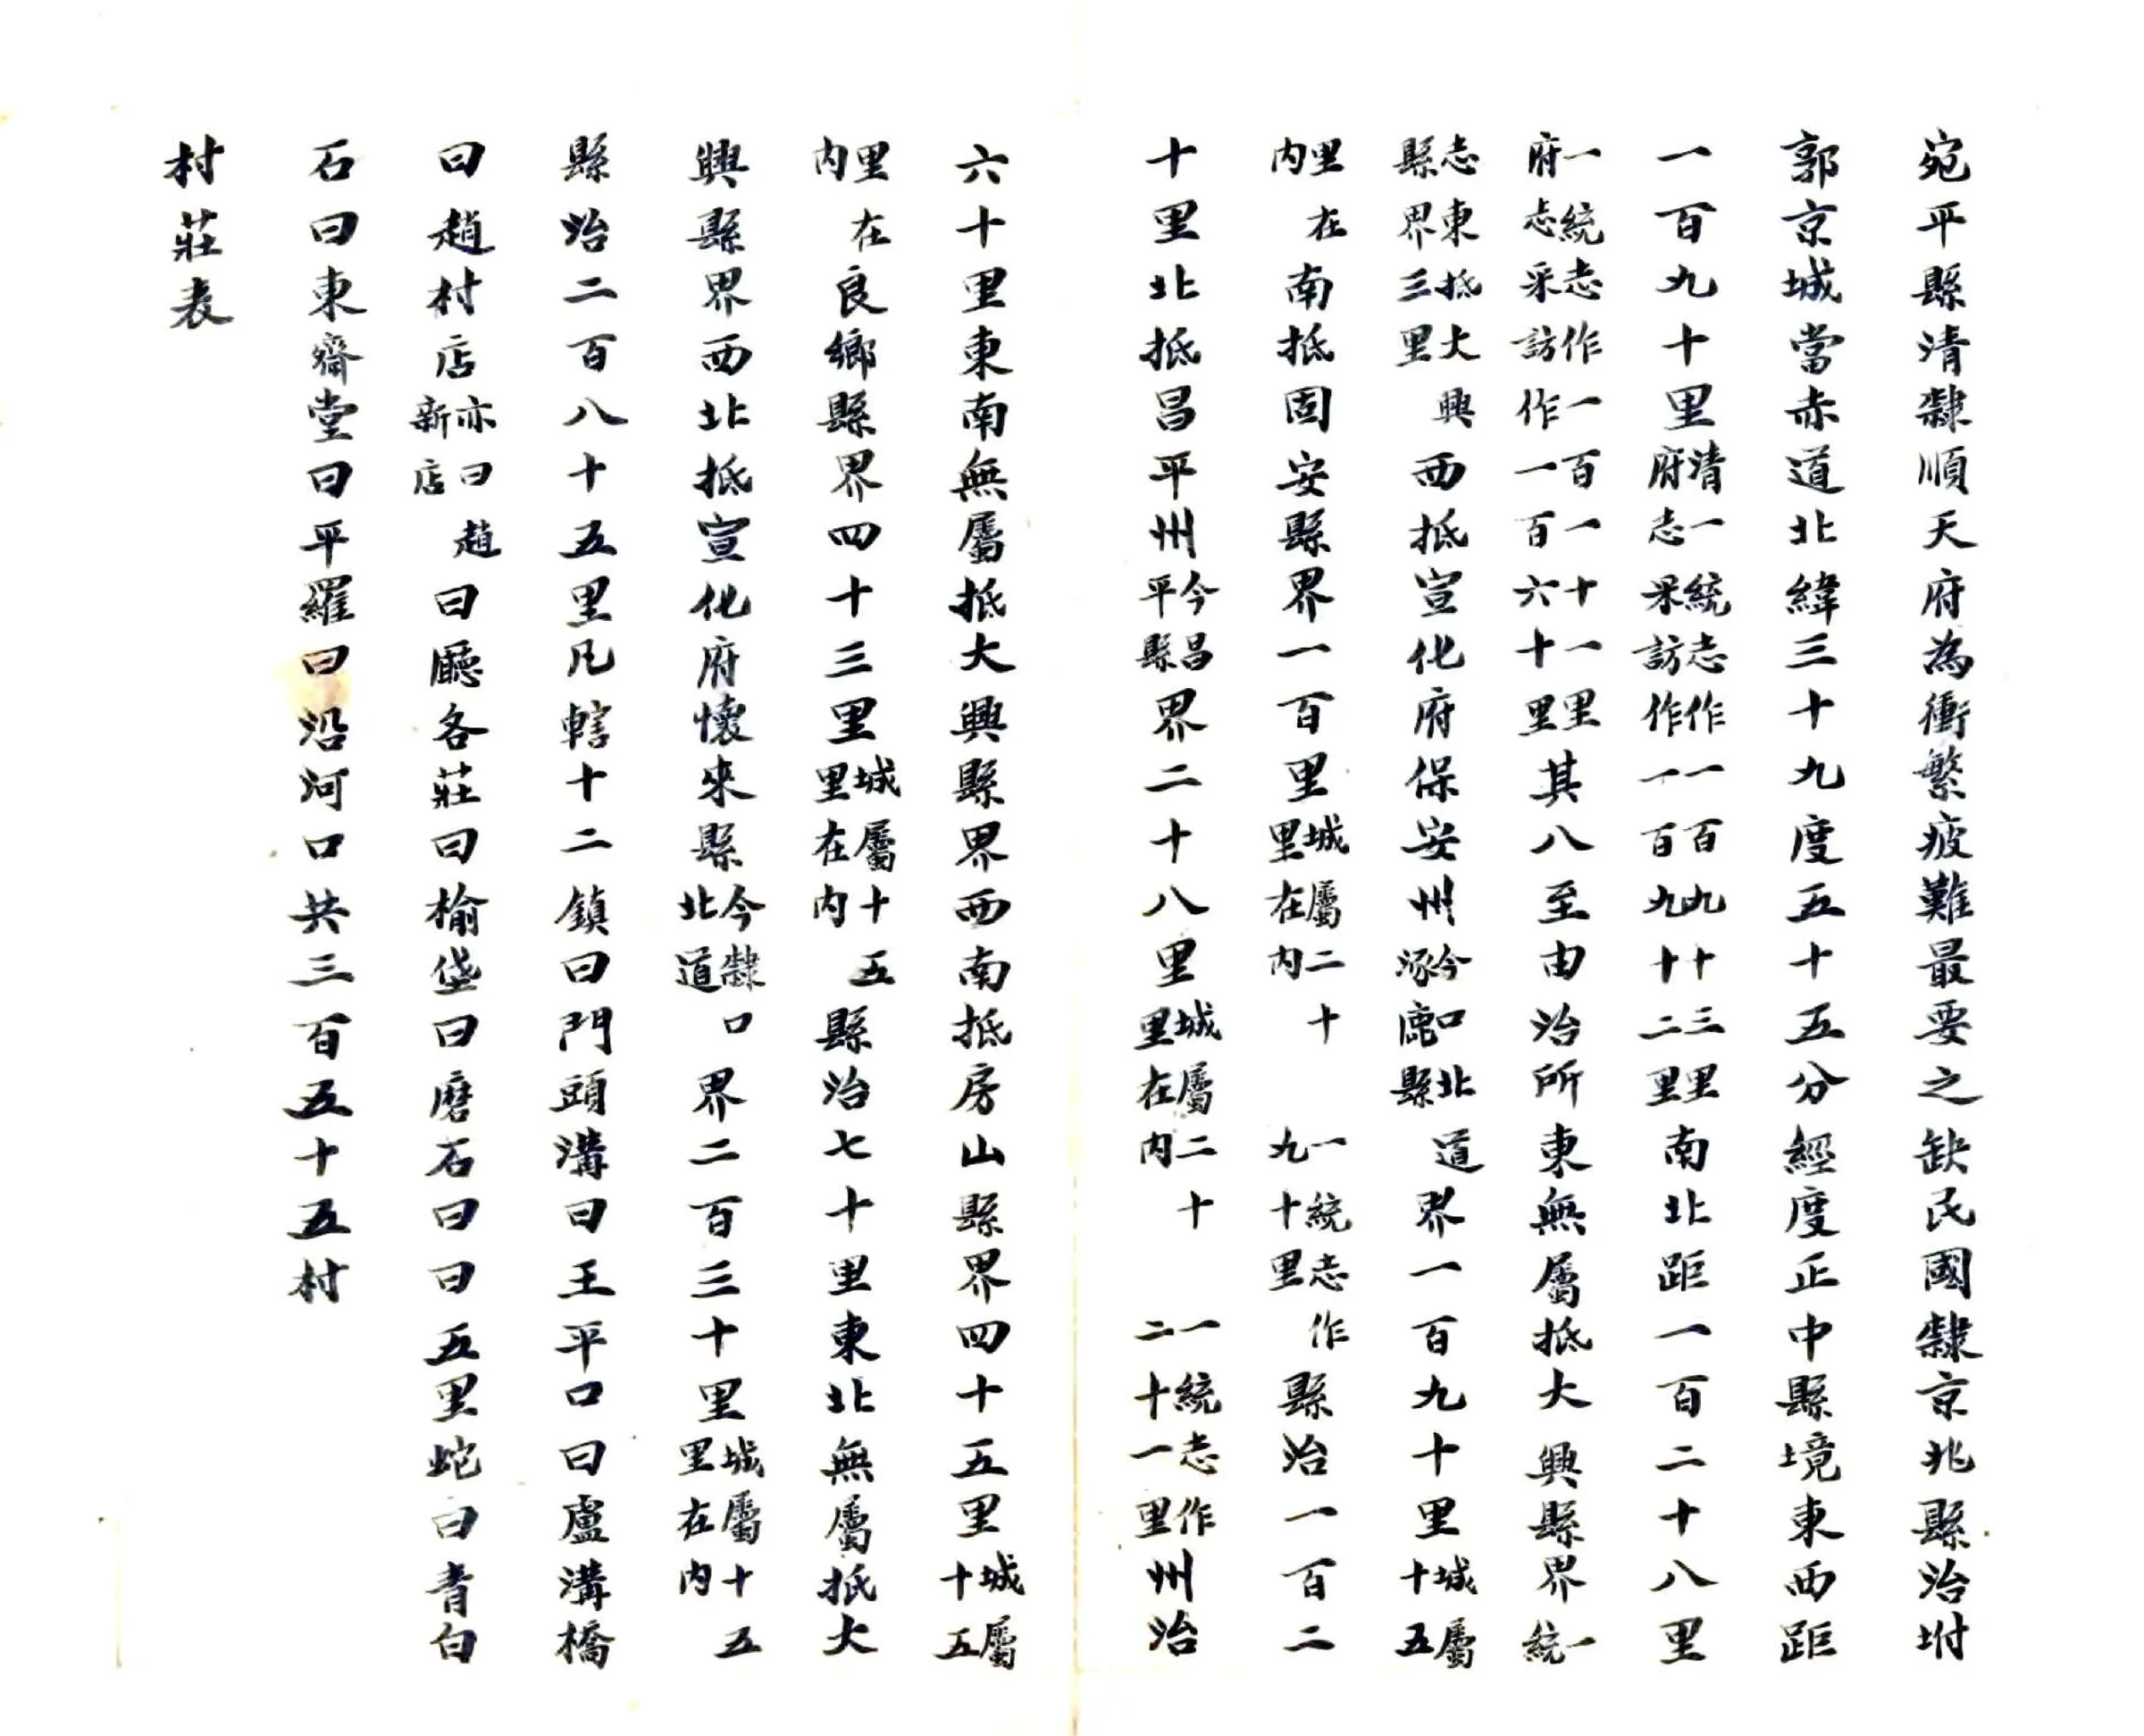 宛平縣清隸順天府為衝繁疲難最要之缺民國隸京兆縣治坿
郭京城當赤道北緯三十九度五十五分經度正中縣境東西距
一百九十里清一統志作一百九十三里府志采訪作一百九十二里南北距一百二十八里
一統志作一百一十一里府志采訪作一百六十里其八至由治所東無屬抵大興縣界一統
志東抵大興縣界三里西抵宣化府保安州今口北道涿鹿縣界一百九十里城屬十五
里在內南抵固安縣界一百里城屬二十里在內一統志作九十里縣治一百二
十里北抵昌平州今昌平縣界二十八里城屬二十里在內一統志作二十一里州治
六十里東南無屬抵大興縣界西南抵房山縣界四十五里城屬十五
里在內良鄉縣界四十三里城屬十五里在內縣治七十里東北無屬抵大
興縣界西北抵宣化府懷來縣今隸口北道界二百三十里城屬十五里在內
縣治二百八十五里凡轄十二鎮曰門頭溝曰王平口曰盧溝橋
曰趙村店亦曰趙新店曰龐各莊曰榆垡曰磨石曰曰五里蛇曰青白
石曰東齋堂曰平羅曰沿河口共三百五十五村
村莊表